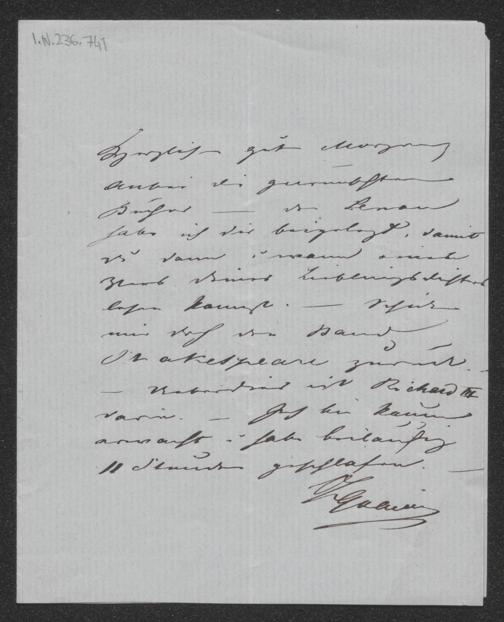 I.N.236.741
Herzlich gut Morgen
Anbei die gewünschten
Bücher — den Lenau
habe ich dir beigelegt, damit
du dann u wann einen
Deines Lieblingsdichters
lesen kannst. — Schicke
mir doch den Band
Shakespeare zurück. —
— Ueberdies ist Richard III
darin. — Ich bin kaum
erwacht u habe beiläufig
11 Stunden geschlafen. —